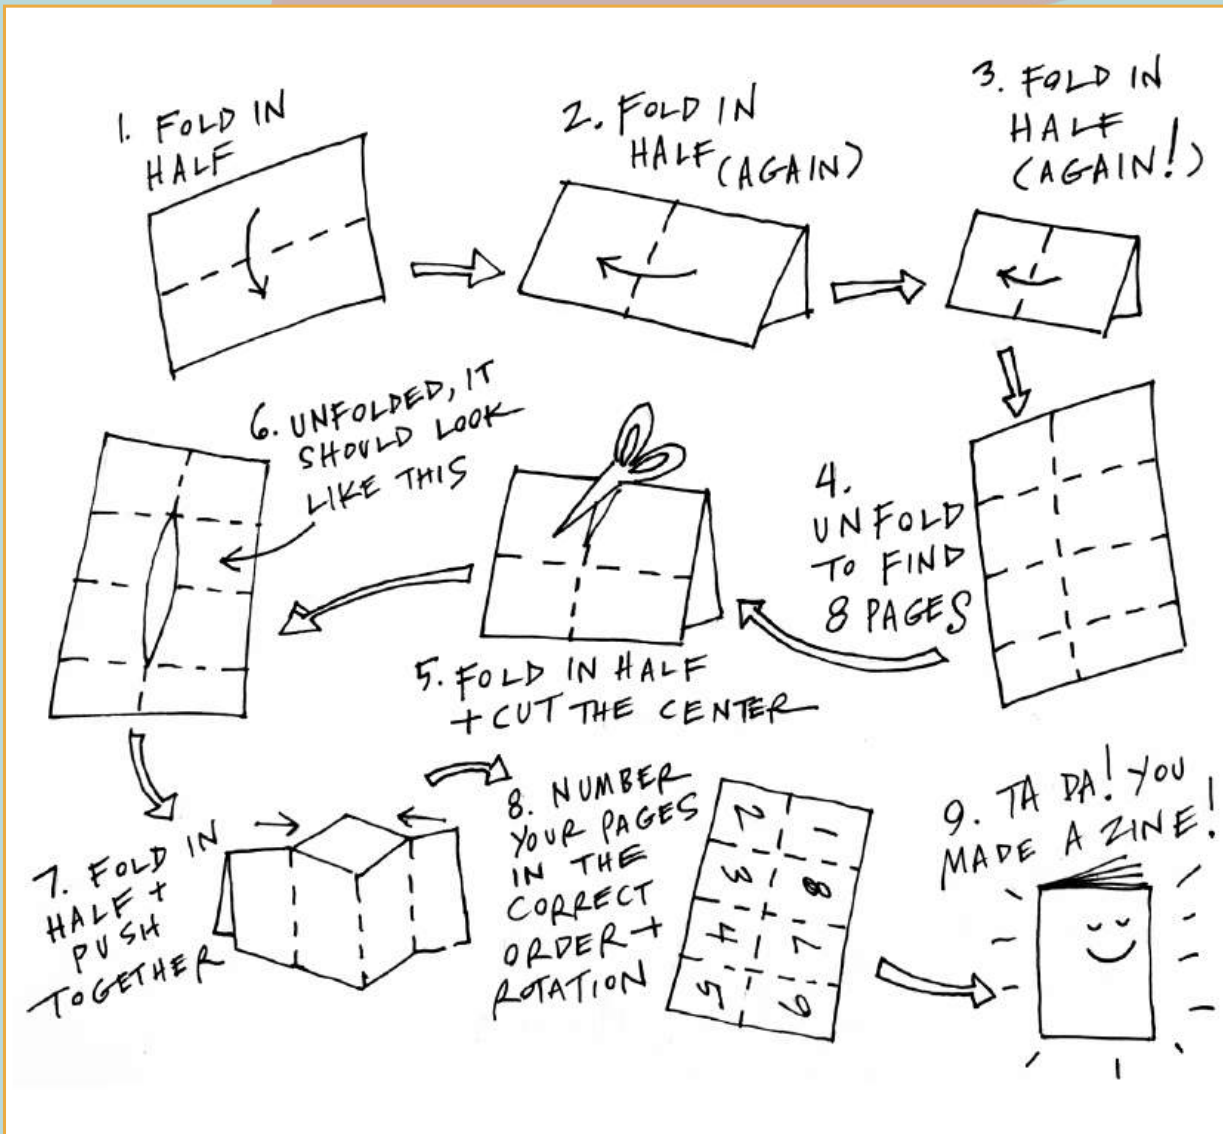 1. FOLD IN
HALF
2. FOLD IN
HALF (AGAIN)
3. FOLD IN
HALF
(AGAIN!)
4.
UNFOLD
TO FIND
8 PAGES
5. FOLD IN HALF
+ CUT THE CENTER
6. UNFOLDED, IT
SHOULD LOOK
LIKE THIS
7. FOLD IN
HALF +
PUSH
TOGETHER
8. NUMBER
YOUR PAGES
IN THE
CORRECT
ORDER +
ROTATION
2 1
3 8
4 7
5 6
9. TA DA! YOU
MADE A ZINE!